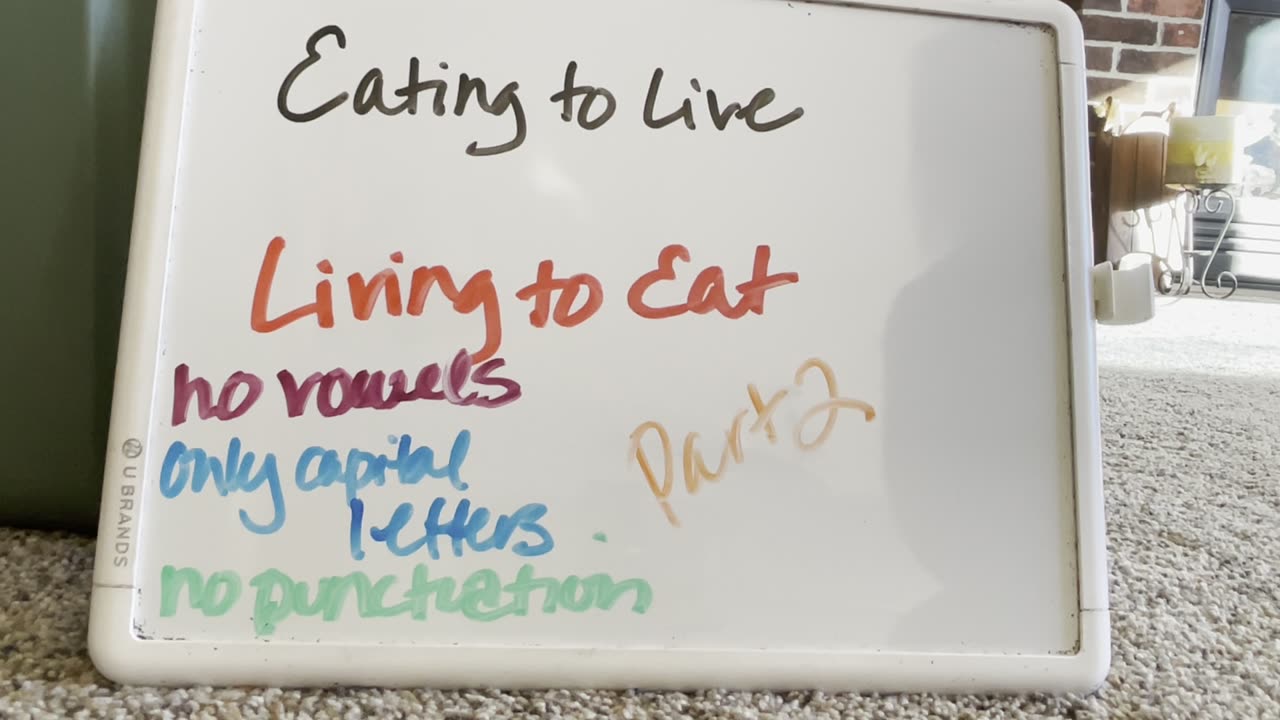 Eating to Live
Living to Eat
no vowels
only capital
letters
no punctuation
Part 2
U BRANDS